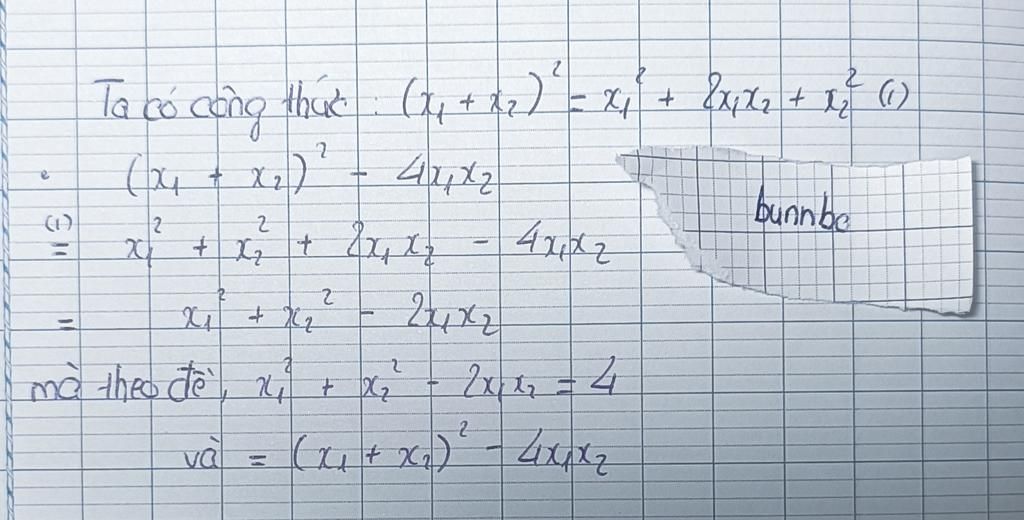 Ta có công thức : (x₁ + x₂)² = x₁² + 2x₁x₂ + x₂² (1)
• (x₁ + x₂)² - 4x₁x₂
bunnbe
(1) = x₁² + x₂² + 2x₁x₂ - 4x₁x₂
= x₁² + x₂² - 2x₁x₂
mà theo đề, x₁² + x₂² - 2x₁x₂ = 4
và = (x₁ + x₂)² - 4x₁x₂